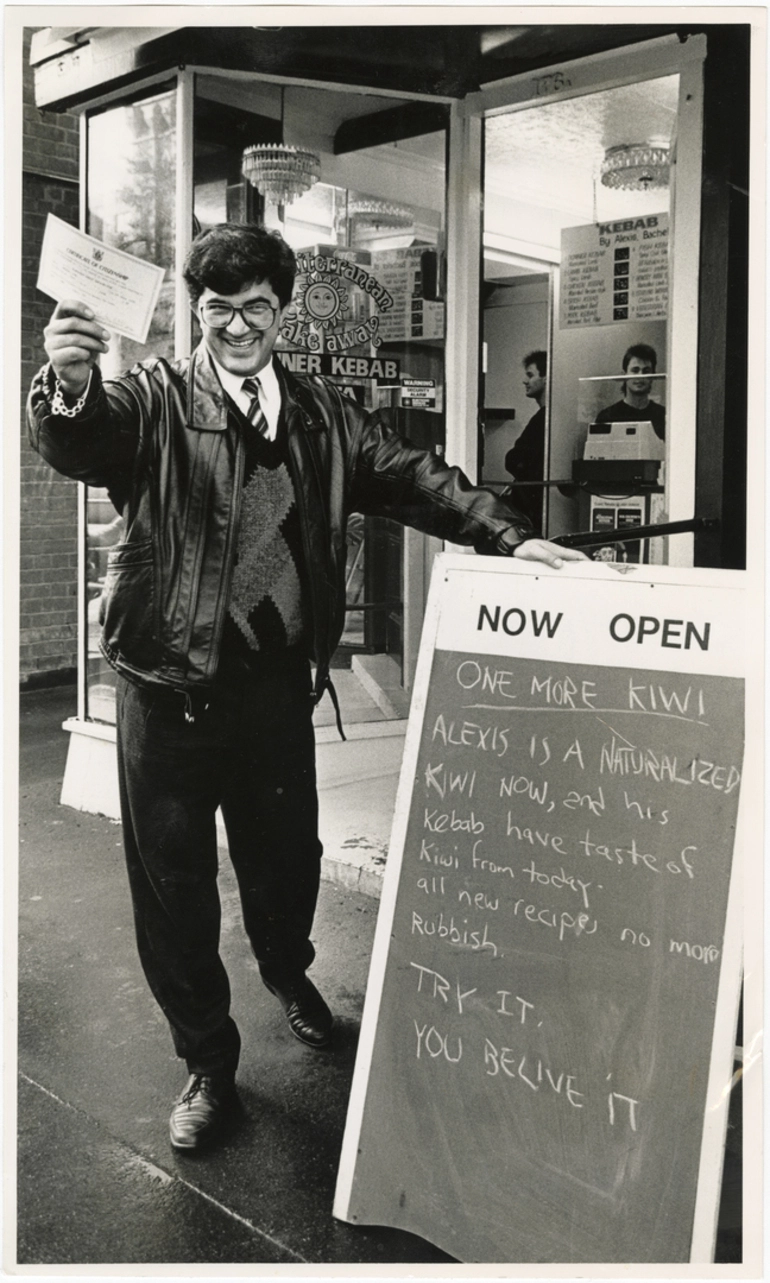 CERTIFICATE OF CITIZENSHIP
Mediterranean
Take away
NER KEBAB
WARNING
SECURITY
ALARM
KEBAB
By Alexis, Bachel
NOW OPEN
ONE MORE KIWI
ALEXIS IS A NATURALIZED
KIWI NOW, and his
Kebab have taste of
Kiwi from today.
all new recipes no more
Rubbish.
TRY IT.
YOU BELIVE IT